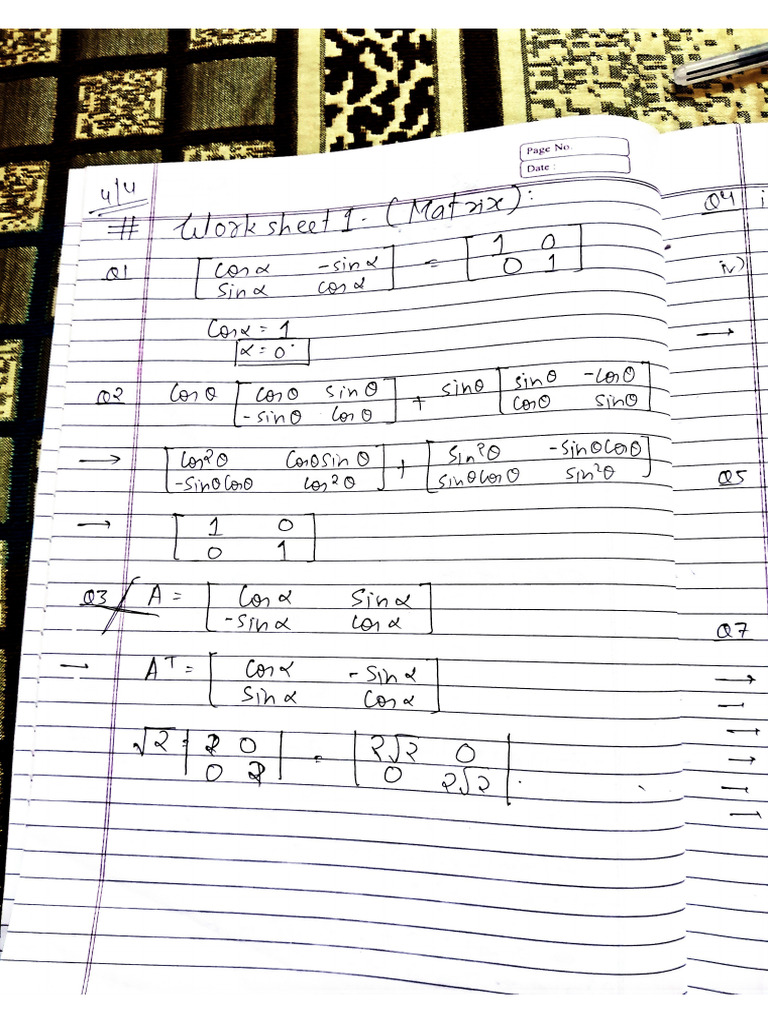 Page No.
Date :
4/4
# Worksheet 1. (Matrix):
Q1 [cosα -sinα] = [1 0]
[sinα cosα] [0 1]
Cosα = 1
α = 0°
Q2 cosθ [cosθ sinθ] + sinθ [sinθ -cosθ]
[-sinθ cosθ] [cosθ sinθ]
→ [cos²θ cosθsinθ] + [sin²θ -sinθcosθ]
[-sinθcosθ cos²θ] [sinθcosθ sin²θ]
→ [1 0]
[0 1]
Q3 A = [cosα sinα]
[-sinα cosα]
→ Aᵀ = [cosα -sinα]
[sinα cosα]
√2 = |2 0| = |2√2 0|
|0 2| |0 2√2|.
Q4 i
iv)
→
Q5
Q7
→
→
→
→
→
→